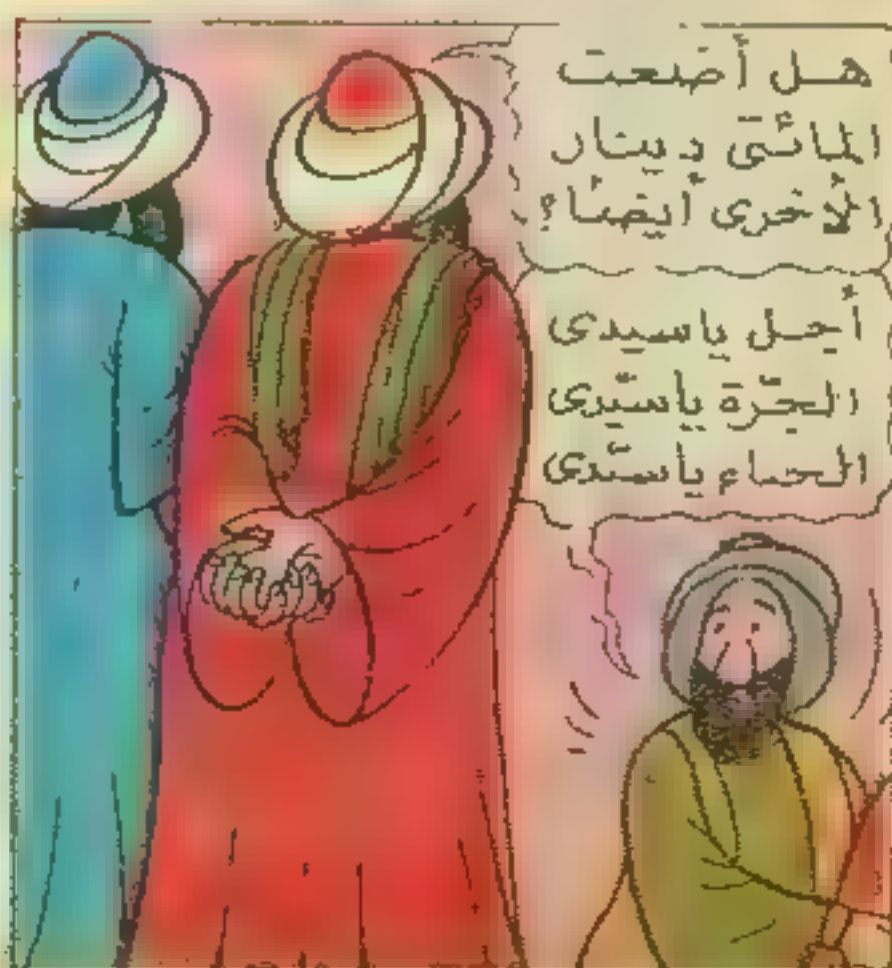 هل أضعت
المائتى دينار
الأخرى أيضًا؟
أجل ياسيدى
الجرّة ياسيّدى
الحساء ياسيّدى